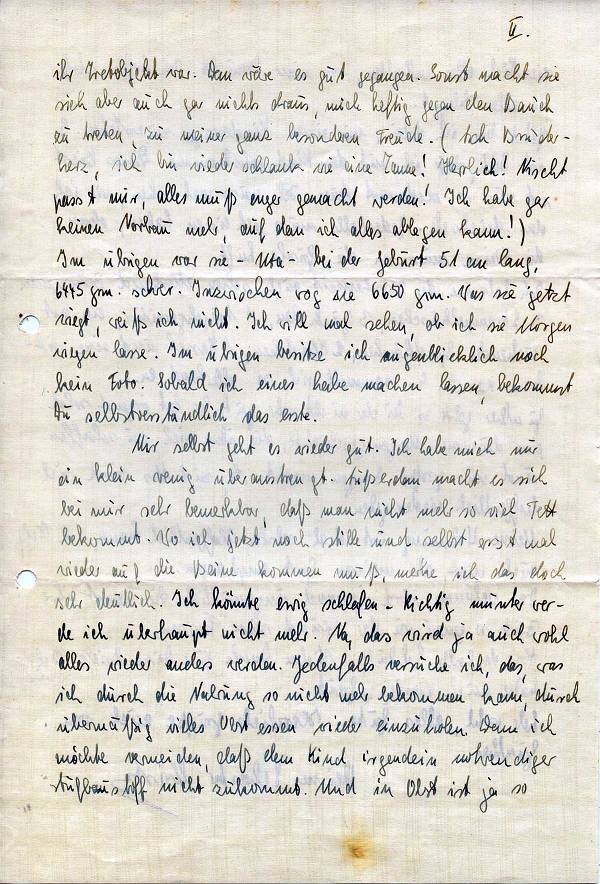 II.
ihr Tretobjekt war. Dem wäre es gut gegangen. Sonst macht sie
sich aber auch gar nichts draus, mich heftig gegen den Bauch
zu treten, zu meiner ganz besonderen Freude. (Ach Bruder-
herz, ich bin wieder schlank wie eine Tanne! Herrlich! Nischt
passt mir, alles muß enger gemacht werden! Ich habe gar
keinen Vorbau mehr, auf dem ich alles ablegen kann!)
Im übrigen war sie - Uta - bei der Geburt 51 cm lang,
6445 grm. schwer. Inzwischen wog sie 6650 grm. Was sie jetzt
wiegt, weiß ich nicht. Ich will mal sehen, ob ich sie Morgen
wiegen lasse. Im übrigen besitze ich augenblicklich noch
kein Foto. Sobald ich eines habe machen lassen, bekommst
Du selbstverständlich das erste.
Mir selbst geht es wieder gut. Ich habe mich nur
ein klein wenig überanstrengt. Außerdem macht es sich
bei mir sehr bemerkbar, daß man nicht mehr so viel Fett
bekommt. Wo ich jetzt noch stille und selbst erst mal
wieder auf die Beine kommen muß, merke ich das doch
sehr deutlich. Ich könnte ewig schlafen - Richtig munter wer-
de ich überhaupt nicht mehr. Na, das wird ja auch wohl
alles wieder anders werden. Jedenfalls versuche ich, das, was
ich durch die Nahrung so nicht mehr bekommen kann, durch
übermäßig vieles Obst essen wieder einzuholen. Denn ich
möchte vermeiden, daß dem Kind irgendein notwendiger
Aufbaustoff nicht zukommt. Und in Obst ist ja so